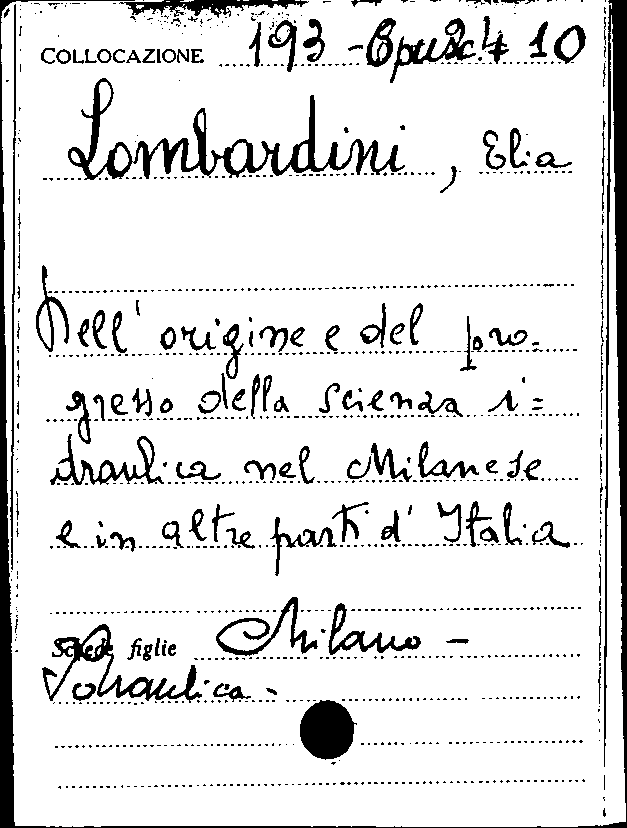 COLLOCAZIONE 193 - Opusc. 4 10
Lombardini, Elia
Dell'origine e del pro-
gresso della scienza i=
draulica nel Milanese
e in altre parti d'Italia
Schede figlie Milano -
Idraulica -